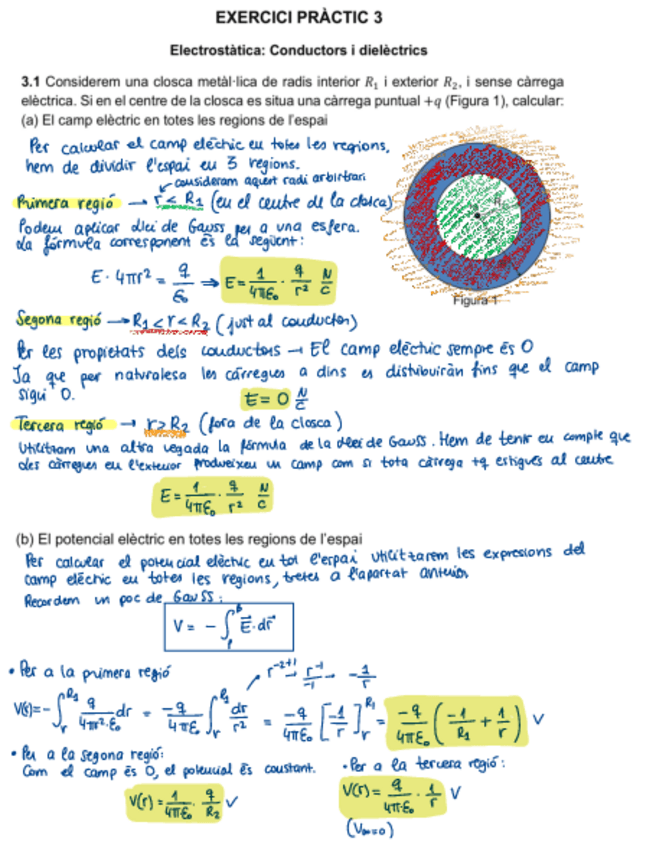 EXERCICI PRÀCTIC 3
Electrostàtica: Conductors i dielèctrics
3.1 Considerem una closca metàl·lica de radis interior R₁ i exterior R₂, i sense càrrega
elèctrica. Si en el centre de la closca es situa una càrrega puntual +q (Figura 1), calcular:
(a) El camp elèctric en totes les regions de l'espai
Per calcular el camp elèctric en totes les regions,
hem de dividir l'espai en 3 regions.
consideram aquest radi arbitrari
Primera regió → r < R₁ (en el centre de la closca)
Podem aplicar Llei de Gauss per a una esfera.
La fórmula corresponent és la següent:
E · 4πr² = q/ε₀ ⇒ E = 1/4πε₀ · q/r² N/C
R₁
Figura 1
Segona regió → R₁ < r < R₂ (just al conductor)
Per les propietats dels conductors → El camp elèctric sempre és 0
Ja que per naturalesa les càrregues a dins es distribuiràn fins que el camp
sigui 0.
E = 0 N/C
Tercera regió → r > R₂ (fora de la closca)
Utilitzam una altra vegada la fórmula de la Llei de Gauss. Hem de tenir en compte que
les càrregues en l'exterior produeixen un camp com si tota càrrega +q estigués al centre
E = 1/4πε₀ · q/r² N/C
(b) El potencial elèctric en totes les regions de l'espai
Per calcular el potencial elèctric en tot l'espai utilitzarem les expresions del
camp elèctric en totes les regions, tretes a l'apartat anterior.
Recordem un poc de Gauss:
V = - ∫ E⃗ · dr⃗
• Per a la primera regió
r⁻²⁺¹ → r⁻¹/-1 → -1/r
V(r) = - ∫ᵣᴿ¹ q/4πr²·ε₀ dr = -q/4πε₀ ∫ᵣᴿ¹ dr/r² = -q/4πε₀ [-1/r]ᵣᴿ¹ = -q/4πε₀ (-1/R₁ + 1/r) V
• Per a la segona regió:
Com el camp és 0, el potencial és constant.
V(r) = 1/4πε₀ · q/R₂ V
• Per a la tercera regió:
V(r) = q/4πε₀ · 1/r V
(V∞=0)